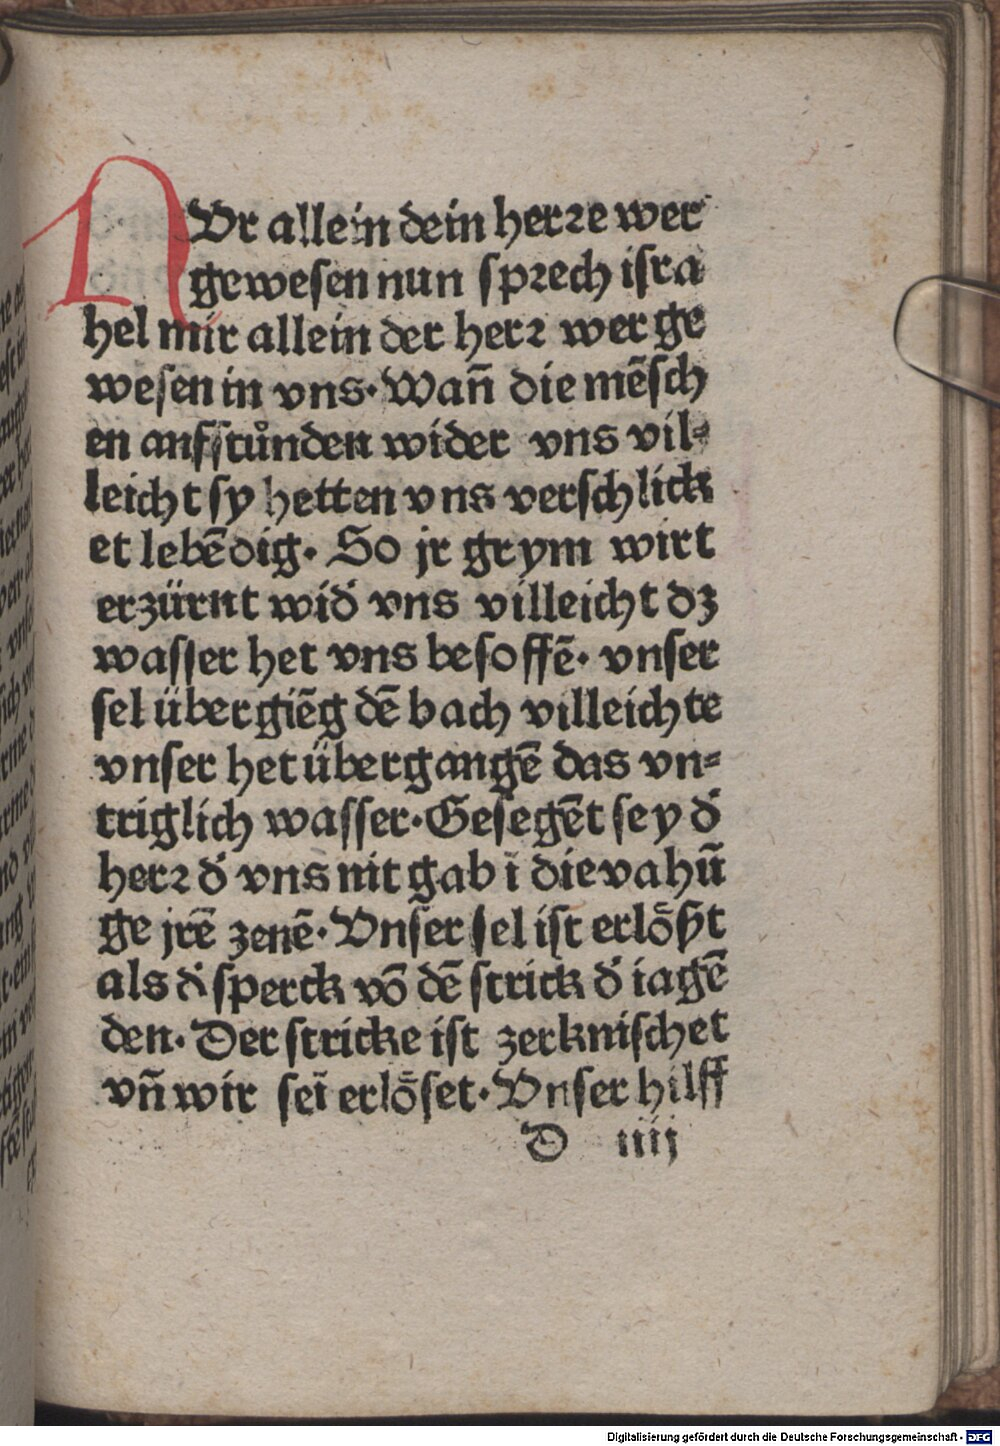 NVr allein dein herꝛe wer
geweſen nun ſpꝛech iſra
hel mir allein der herꝛ wer ge
weſen in vns. Wañ die mēſch
en anfſtůnden wider vns vil⸗
leicht ſy hetten vns verſchlick
et lebēdig. So jr grym wirt
erzürnt wid' vns villeicht dz
waſſer het vns beſoffē. vnſer
ſel übergiēg dē bach villeichte
vnſer het übergangē das vn⸗
triglich waſſer. Geſegēt ſey d'
herꝛ d' vns nit gab ī die vahū
ge jrē zenē. Vnſer ſel iſt erlöſʒt
als d' ſperck vō dē ſtrick d' iagē
den. Der ſtricke iſt zerkniſchet
vñ wir ſeī erlöſet. Vnſer hilff
D iiij
Digitalisierung gefördert durch die Deutsche Forschungsgemeinschaft - DFG